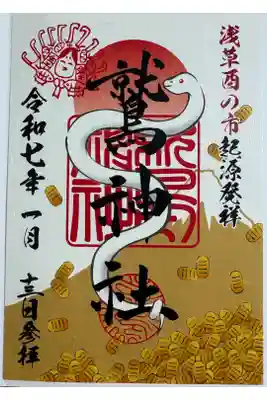 浅草酉の市起源発祥
鷲神社
令和七年 一月
十三日参拝